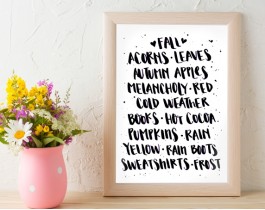 ♥FALL♥
ACORNS · LEAVES
AUTUMN APPLES
MELANCHOLY · RED
COLD WEATHER
BOOKS · HOT COCOA
PUMPKINS · RAIN
YELLOW · RAIN BOOTS
SWEATSHIRTS · FROST